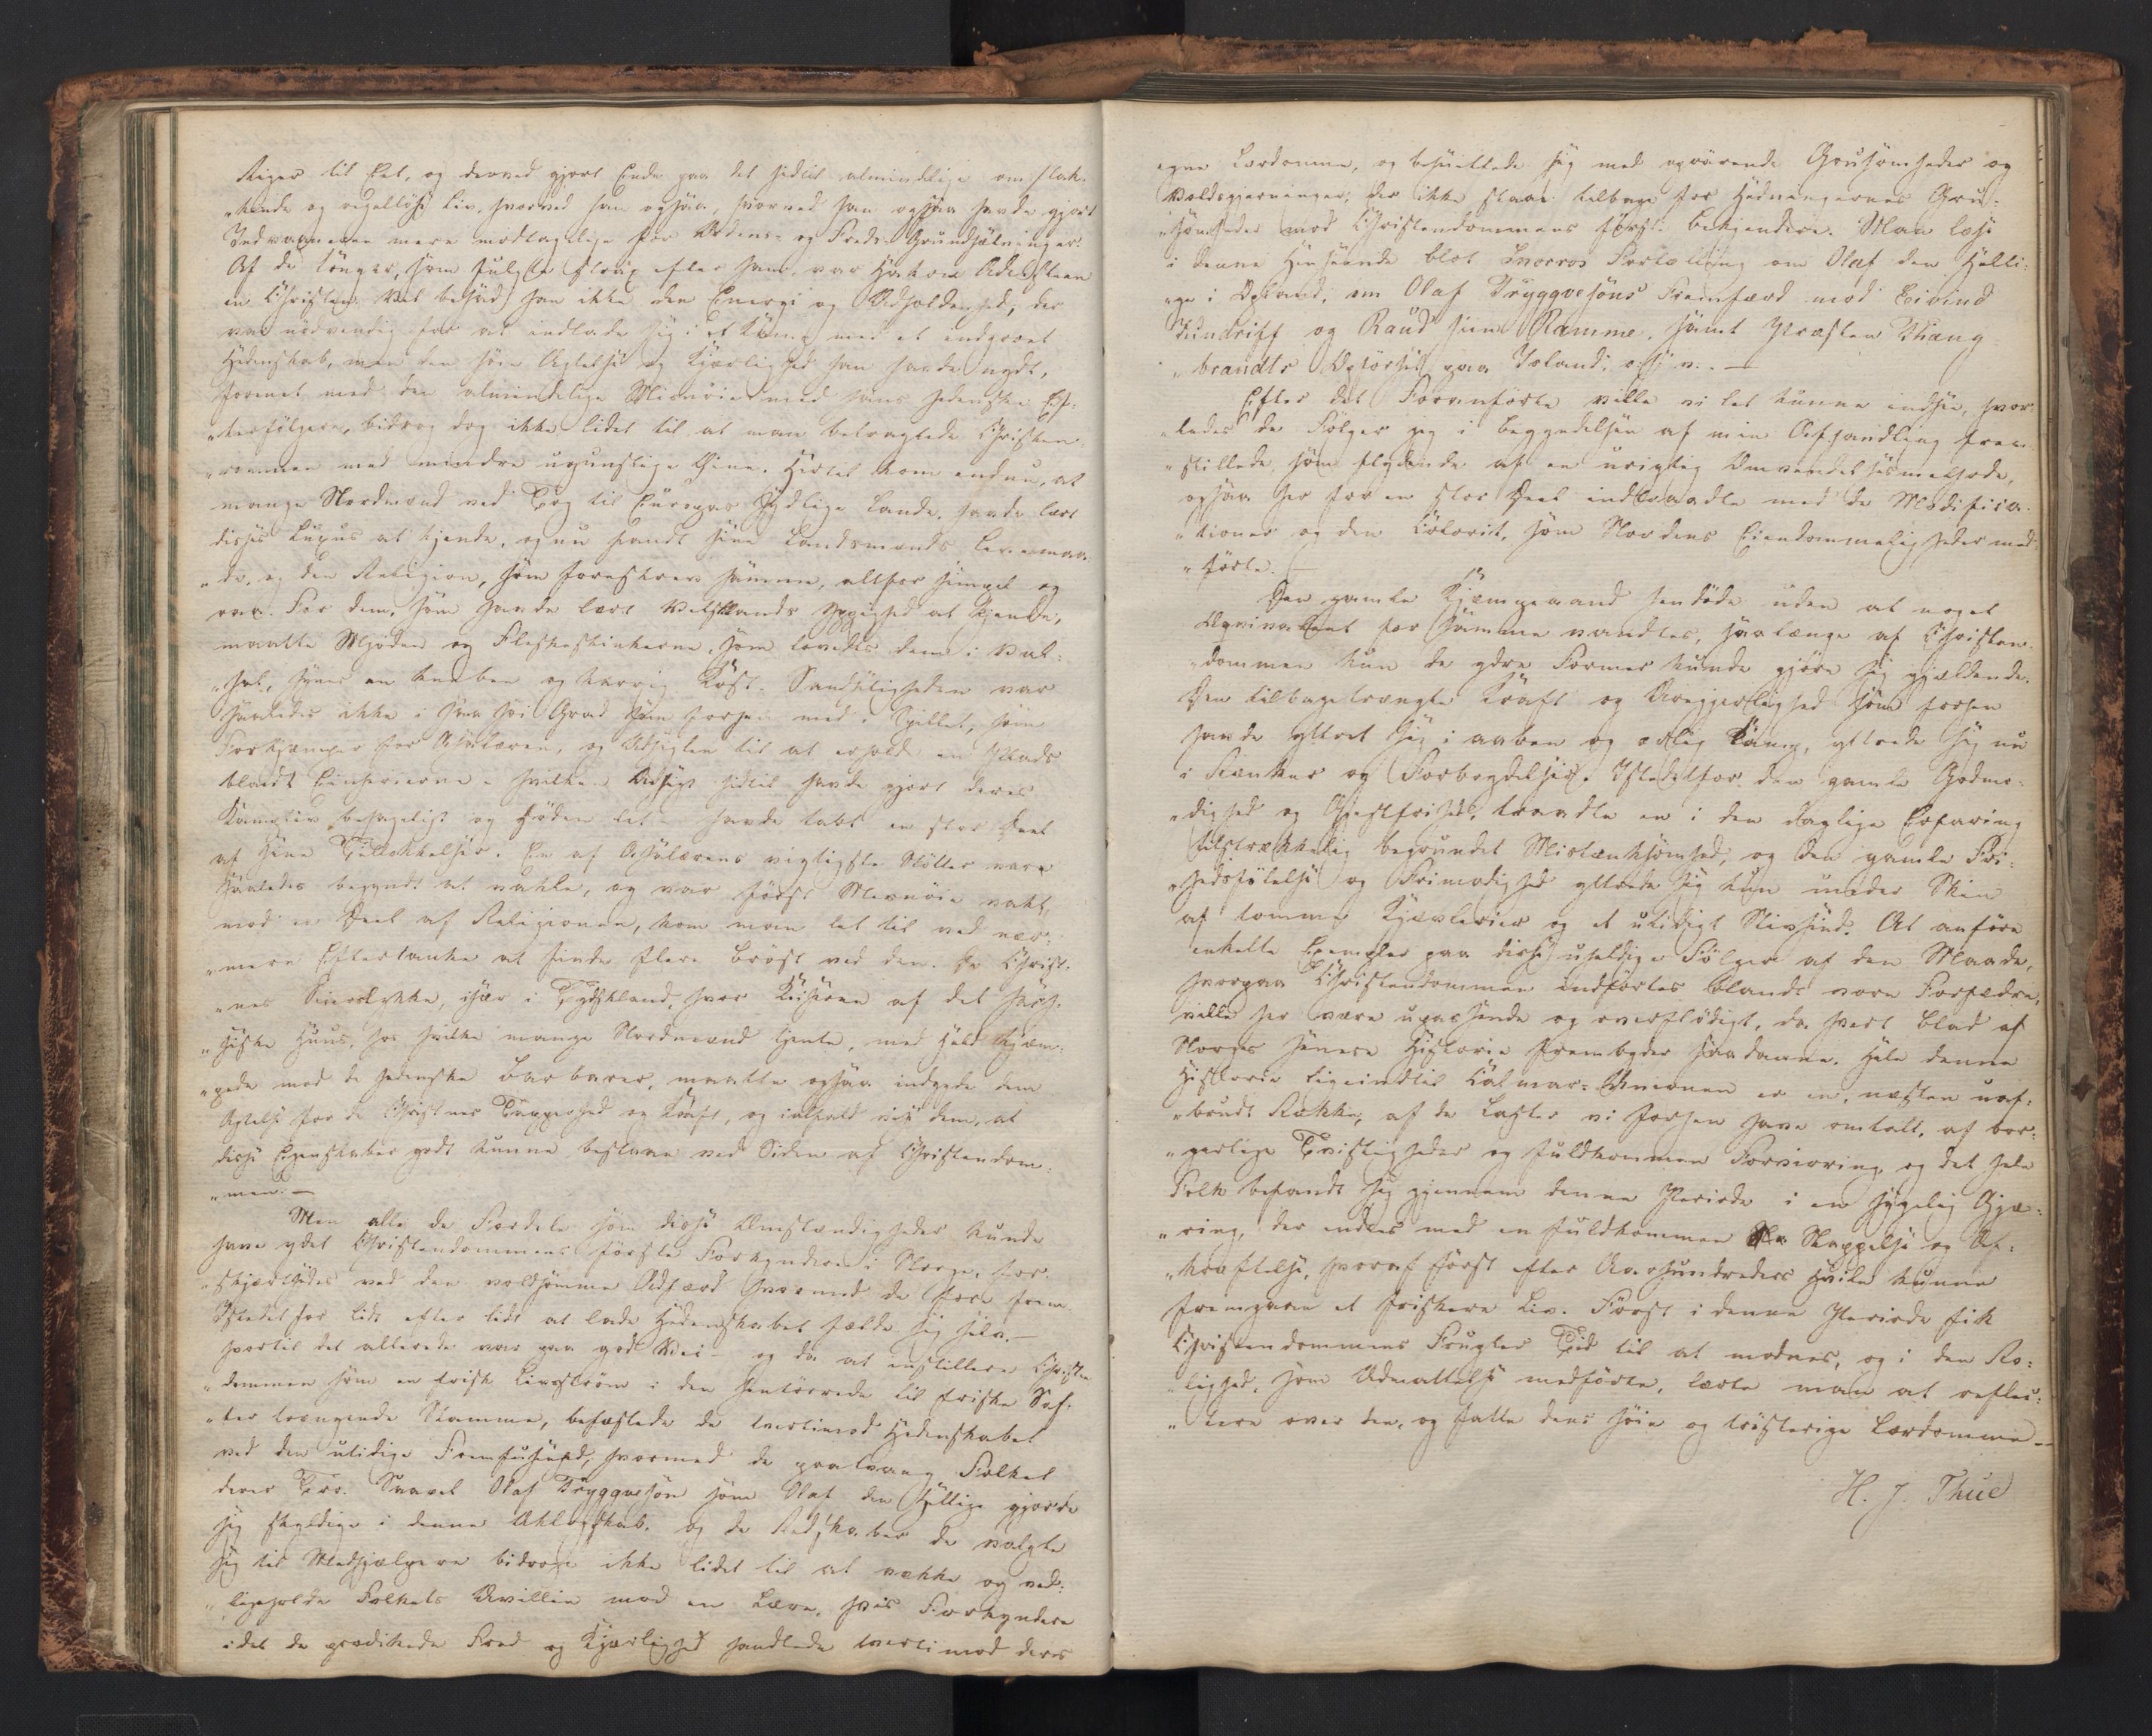 Riger til Eet, og derved gjort Ende paa det hidtil almindelige omflak-
„kende og regelløse Liv, hvorved han ogsaa, hvorved han ogsaa havde gjort
Indvaanerne mere modtagelige for Ordens- og Freds-Grundsætninger.
Af de Konger, som fulgte strax efter ham, var Hakon Adelsteen
en Christen. Vel besad han ikke den Energi og Udholdenhed, der
var nödvendig for at indlade sig i et Kamp med et indgroet
Hedenskab, men den höie Agtelse og Kjærlighed han havde nydt,
forenet med den almindelige Misnöie med hans hedenske Ef-
„terfölgere, bidrog dog ikke lidet til at man betragtede Christen-
„dommen med mindre ugunstige Öine. Hertil kom endnu, at
mange Nordmænd ved Tog til Europas sydlige Lande, havde lært
disses Luxus at kjende, og nu fandt sine Landsmænds Levemaa-
„de, og den Religion, som foreskrev samme, altfor simpel og
raa. For dem, som havde lært Valsklands Yppighed at kjende,
maatte Mjöden og Fleskeskinkerne, som lovedes dem i Val-
„hal, synes en knebben og karrig Kost. Sandseligheden var
saaledes ikke i saa höi Grad som forhen med i Spillet, som
Forkjæmper for Asalæren, og Udsigten til at erholde en Plads
blandt Einherierne – hvilken Udsigt hidtil havde gjort deres
Kampliv behageligt og Döden let – havde tabt en stor Deel
af sine Tillokkelser. En af Asalærens vigtigste Stötter vare
saaledes begyndt at vakle, og var först Misnöie vakt,
mod en Deel af Religionen, kom man let til ved nær-
„mere Eftertanke at finde flere Bröst ved den. De Christ-
nes Krigslykke, især i Tydskland, hvor Keiserne af det sach-
„siske Huus, hos hvilke mange Nordmænd tjente, med Held kjæm-
„pede mod de hedenske Barbarer, maatte ogsaa indgyde dem
Agtelse for de Christnes Tapperhed og Kraft, og ialfald vise dem, at
disse Egenskaber godt kunne bestaae ved Siden af Christendom-
„men. —
Men alle de Fordele som disse Omstændigheder kunde
have ydet Christendommens förste Forkyndere i Norge, for-
„skjærtsedes ved den voldsomme Adfærd hvormed de fore frem.
Istedetfor lidt efter lidt at lade Hedenskabet fælde sig selv –
hvortil det allerede var paa god Vei – og da at instillere Christen-
„dommen som en frisk Livsström i den hentörrede til friske Saf-
„ter trængende Stamme, befæstede de tvertimod Hedenskabet
ved den utidige Fremfusenhed, hvormed de paatvang Folket
deres Tro. Saavel Olaf Tryggvesön som Olaf den Hellige gjorde
sig skyldige i denne Uklogskab, og de Redskaber de valgte
sig til Medhjælpere bidroge ikke lidet til at vække og ved-
„ligeholde Folkets Uvillie mod en Lære, hvis Forkyndere
idet de prædikede Fred og Kjærlighed handlede tvertimod deres
egne Lærdomme, og besudlede sig med oprörende Grusomheder og
Voldsgjerninger, der ikke staae tilbage for Hedningernes Gru-
„somheder mod Christendommens först. Bekjendere. Man læse
i denne Henseende blot Snorros Fortælling om Olaf den Helli-
„ge i Opland, om Olaf Tryggvesöns Fremfærd mod Eivind
Kindrift og Raud hin Ramme, samt Præsten Thang-
„brandts Opförsel paa Island, o. s. v. —
Efter det Foranförte ville vi let kunne indsee, hvor-
„ledes de Fölger jeg i Begyndelsen af min Afhandling frem-
„stillede som flydende af en urigtig Omvendelsesmethode,
ogsaa her for en stor Deel indtraadte med de Modifica-
„tioner og den Kolorit, som Nordens Eiendommeligheder med-
„förte. —
Den gamle Kjæmpeaand hendöde uden at noget
Æqvivalent for samme vandtes, saalænge af Christen-
„dommen kun de ydre Former kunde gjöre sig gjældende.
Den tilbagetrængte Kraft og Ærgjerrighed som forhen
havde yttret sig i aaben og ærlig Kamp, yttrede sig nu
i Rænker og Forbrydelser. Istedetfor den gamle Godmo-
„dighed og Gjestfrihed, traadte en i den daglige Erfaring
tilstrækkelig begrundet Mistænksomhed, og den gamle Fri-
„hedsfölelse og Frimodighed yttrede sig kun under Skin
af tomme Kjævlerier og et utidigt Stivsind. At anföre
enkelte Exempler paa disse uheldige Fölger af den Maade,
hvorpaa Christendommen indförtes blandt vore Forfædre,
ville her være upassende og overflödigt, da hvert Blad af
Norges senere Historie frembyder saadanne. Hele denne
Historie ligeindtil Calmar-Unionen er en, næsten uaf-
„brudt Række, af de Laster vi forhen have omtalt, af bor-
„gerlige Tvistigheder og fuldkommen Forvirring, og det hele
Folk befandt sig gjennem denne Periode i en sygelig Gjæ-
„ring, der endtes med en fuldkommen Slappelse og Af-
„kræftelse, hvoraf först efter Aarhundreders Hvile kunne
fremgaae et friskere Liv. Först i denne Periode fik
Christendommens Frugter Tid til at modnes, og i den Ro-
„lighed, som Udmattelse medförte, lærte man at reflec-
„tere over den, og fatte dens höie og trösterige Lærdomme —
H. J. Thue